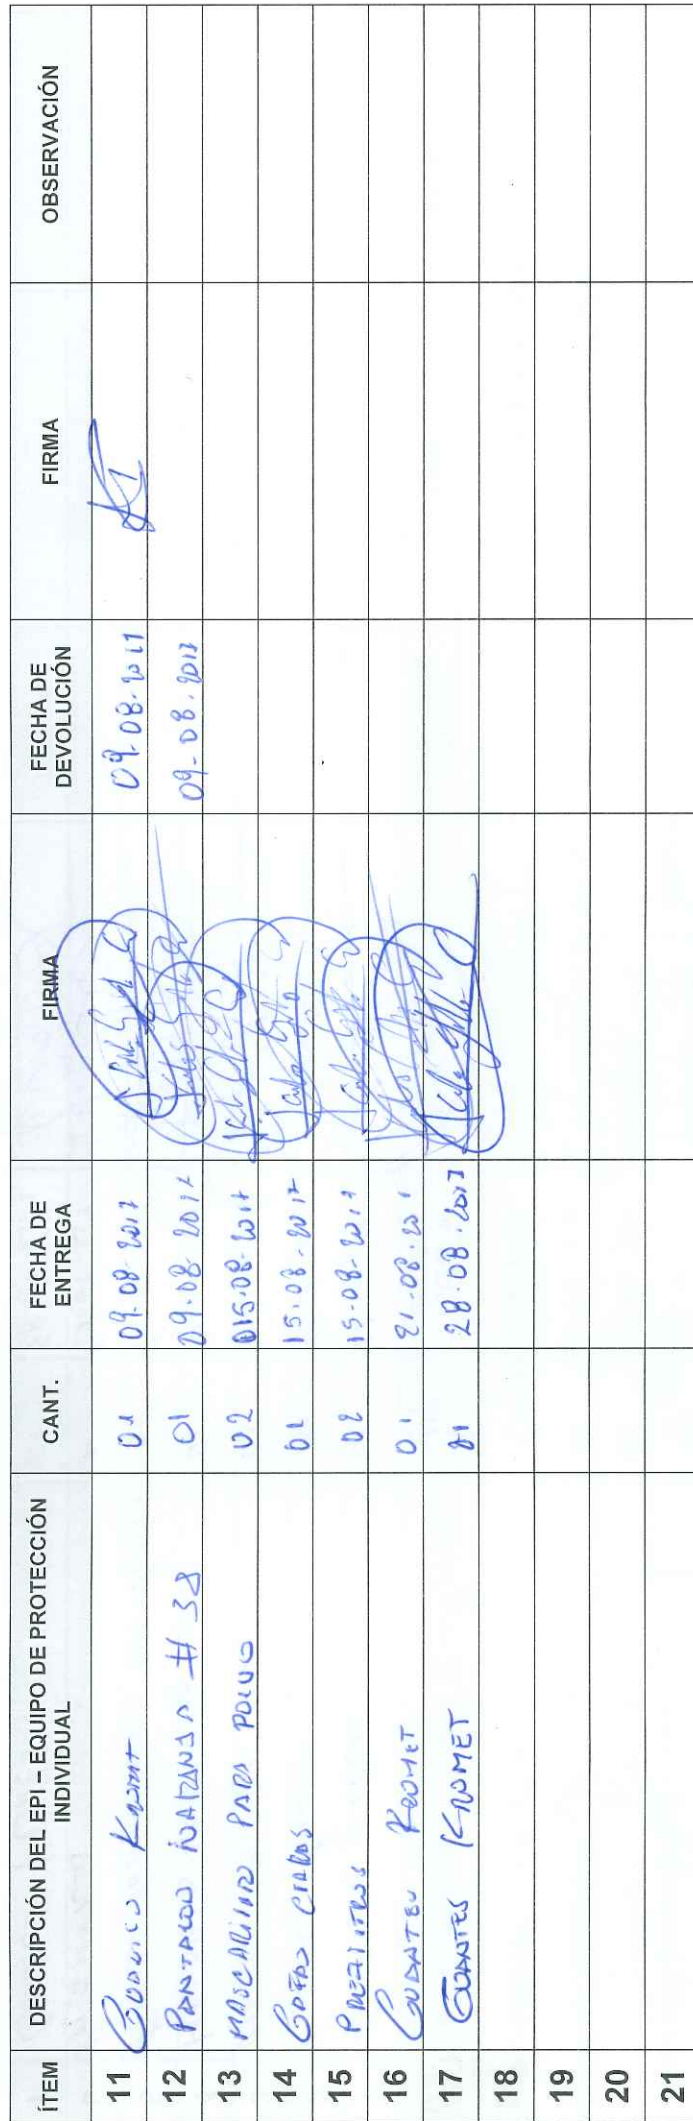 ÍTEM DESCRIPCIÓN DEL EPI – EQUIPO DE PROTECCIÓN INDIVIDUAL CANT. FECHA DE ENTREGA FIRMA FECHA DE DEVOLUCIÓN FIRMA OBSERVACIÓN
11 01 09-08-2017 09-08-2017
12 # 38 01 09-08-2017 09-08-2017
13 MASCARILLAS PARA POLVO 02 015-08-2017
14 GAFAS CLARAS 01 15-08-2017
15 PREFILTROS 02 15-08-2017
16 GUANTES KROMET 01 21-08-201
17 GUANTES KROMET 01 28-08-2017
18
19
20
21